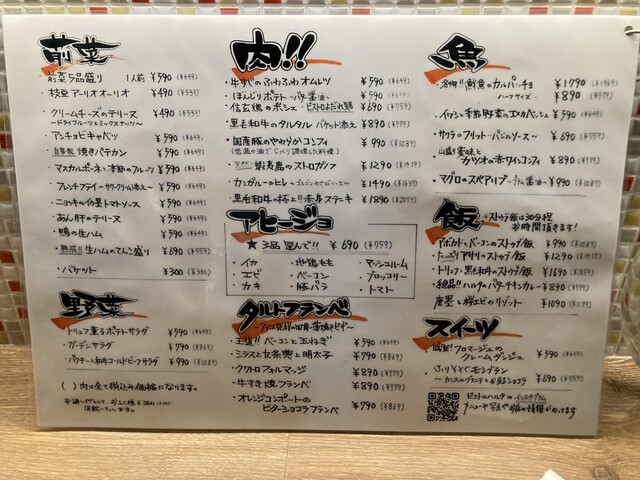 前菜
・前菜5品盛り 1人前 ¥590(¥649)
・枝豆アーリオオーリオ ¥490(¥539)
・クリームチーズのテリーヌ ¥490(¥539)
〜ドライフルーツとミックスナッツ〜
・アンチョビキャベツ ¥590(¥649)
・自家製 焼きパテカン ¥590(¥649)
・マスカルポーネと季節のフルーツ ¥590(¥649)
・フレンチフライ〜サワークリーム添え〜 ¥590(¥649)
・ニョッキのイカ墨トマトソース ¥590(¥649)
・あん肝のテリーヌ ¥590(¥649)
・鴨の生ハム ¥590(¥649)
・熟成!!生ハムのてんこ盛り ¥690(¥759)
・バケット ¥300(¥330)
野菜
・トリュフ薫るポテトサラダ ¥590(¥649)
・ガーデンサラダ ¥790(¥869)
・パクチーと和牛コールドビーフサラダ ¥990(¥1089)
( )内は全て税込み価格になります。
肉!!
・牛すじのふわふわオムレツ ¥590(¥649)
・ほんじりポテト〜バター醤油〜 ¥590(¥649)
・信玄鶏のポシェ〜ビストロよだれ鶏 ¥690(¥759)
・黒毛和牛のタルタル バケット添え ¥890(¥979)
・国産豚のやわらかコンフィ ¥990(¥1089)
低温の油でじっくり調理した料理
蝦夷鹿のストロガノフ ¥1290(¥1419)
・カンガルーのヒレ ¥1490(¥1639)
・黒毛和牛の極上!!赤身ステーキ ¥1890(¥2079)
アヒージョ
★3品選んで!! ¥690(¥759)
・イカ ・地鶏もも ・マッシュルーム
・エビ ・ベーコン ・ブロッコリー
・カキ ・豚バラ ・トマト
タルトフランベ
・王道!!ベーコンと玉ねぎ ¥790(¥869)
・シラスと九条葱と明太子 ¥790(¥869)
・クワトロフォルマッジ ¥890(¥979)
・牛すき焼フランベ ¥890(¥979)
・オレンジコンポートの
ビターショコラフランベ ¥790(¥869)
魚
・名物!!鮮魚のカルパッチョ ¥1790(¥1969)
ハーフサイズ ¥890(¥979)
・イワシと季節野菜のエスカベッシュ ¥590(¥649)
・サケのフリット〜バジルソース〜 ¥590(¥649)
・山盛り薬味と
カツオの赤ワインコンフィ ¥790(¥869)
・マグロのスペアリブ ¥990(¥1089)
飯
ストウブ飯は30分程
お時間頂きます!
・アボカドとベーコンのストウブ飯 ¥990(¥1089)
・たっぷりアサリのストウブ飯 ¥1190
・トリュフと黒毛和牛のストウブ飯 ¥1690
・絶品!!ハルタのバターチキンカレー ¥890(¥979)
・唐墨と桜エビのリゾット ¥1090
スイーツ
・フロマージュの
クレームダンジュ ¥590(¥649)
モンブラン
¥690(¥759)
ビストロハルタのインスタグラム
メニューや写真やお店の情報がのってます